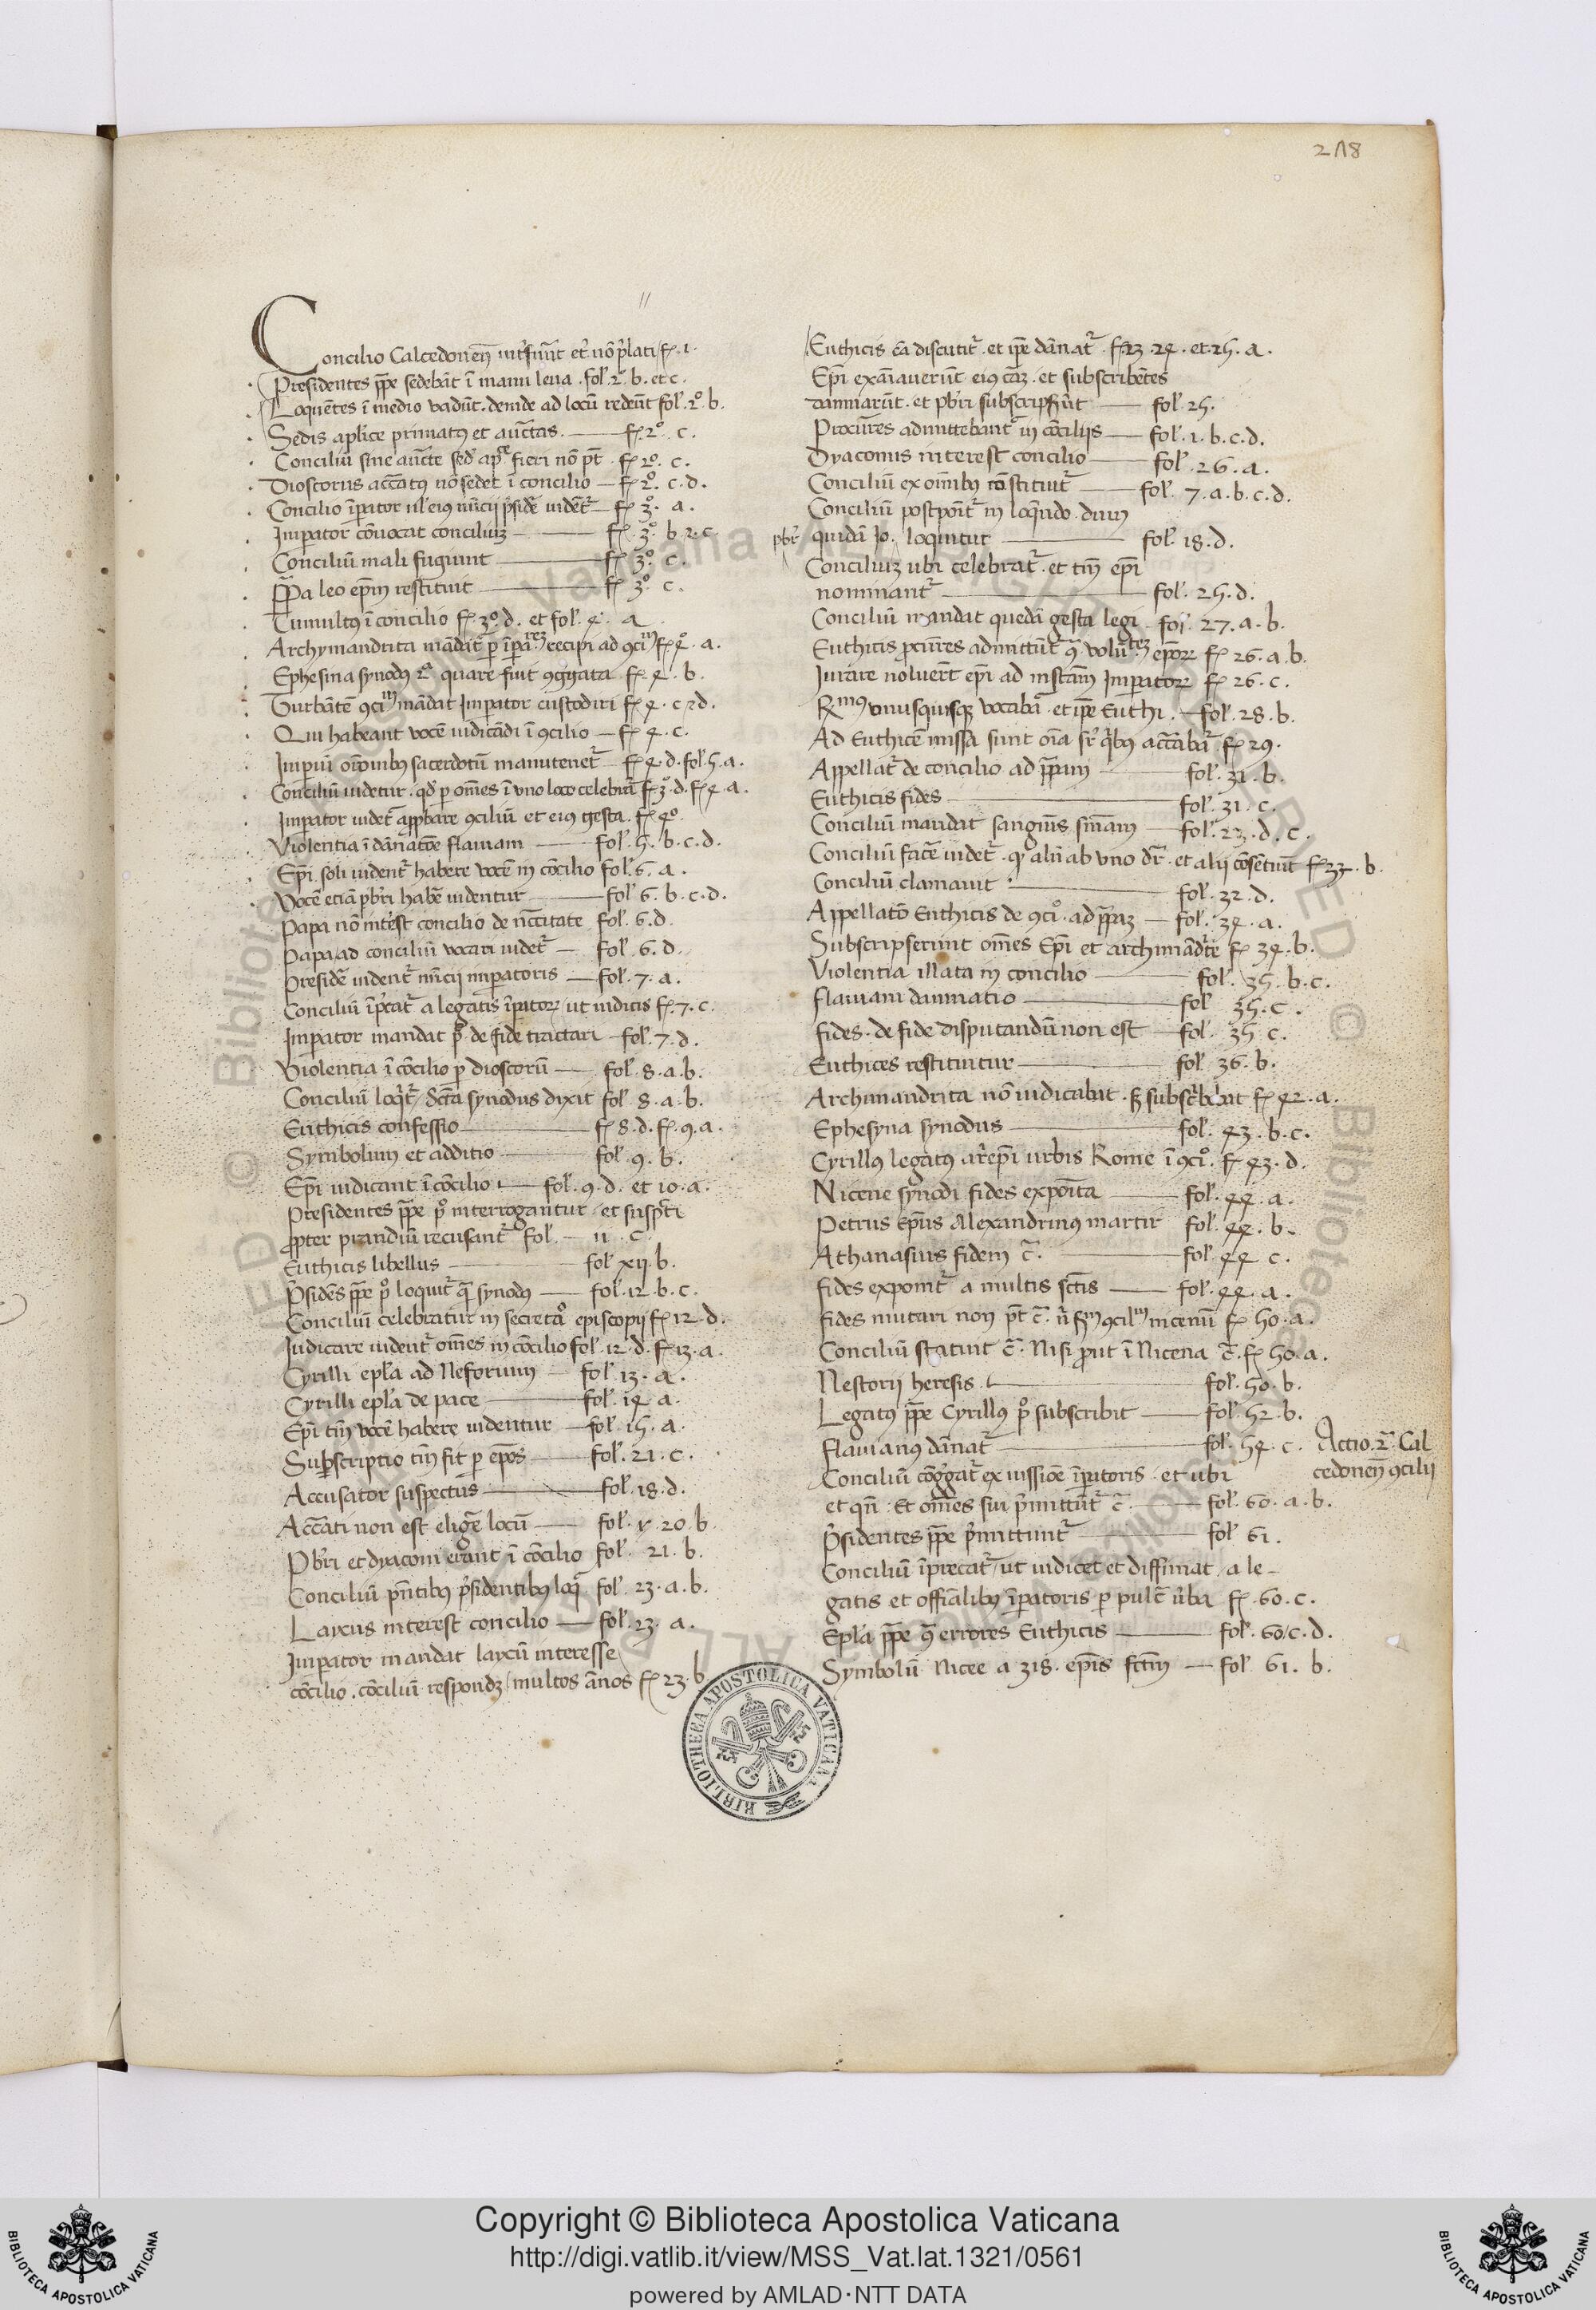 218
Concilio Calcedoneñ int'fuer̄t et nō p̄lati f. 1.
Presidentes pp̄e sedebāt ī manu leua. fol. 2. b. et c.
Loquētes ī medio vadūt. deinde ad locū redeūt fol. 2º b.
Sedis aplice primatꝰ et auctas. f. 2º. c.
Conciliū sine aucte sed' ap. fieri nō pt̄ f. 2º. c.
Dioscorus accatꝰ nō sedet ī concilio f. 2º. c. d.
Concilio īpator ul' eius nūcii p̄sidē uidēt f. 3º. a.
Impator cōuocat concilium f. 3º b c.
Conciliū mali fugiunt f. 3º. c.
Papa leo ep̄m restituit f. 3º c.
Tumultꝰ ī concilio f. 3º. d. et fol. 4. a
Archymandrita mādat' p īpa recipi ad ꝯciᵐ f. 4º. a.
Ephesina synodꝰ 2ᵃ quare fuit ꝯgregata f. 4. b.
Turbātē ꝯciᵐ mādat Impator custodiri f. 4. c d.
Qui habeant vocē iudicādi ī ꝯcilio f. 4. c.
Imperiū oīonibus sacerdotū manutenet f. 4 d. fol. 5. a.
Conciliū uidetur. qd' p om̄es ī uno loco celebrat' f. 3º d. f. 4 a.
Impator uidet' approbare ꝯciliū et eius gesta. f. 4º
Violentia ī dānatōe flauiani fol. 5. b. c. d.
Ep̄i soli uident' habere vocē in cōcilio fol. 6. a.
Vocē etiā pb'ri habē uidentur fol. 6. b. c. d.
Papa nō int'est concilio de nc̄citate fol. 6. d
Papa ad conciliū vocari uidet' fol. 6. d.
Presidē uident' nūcii imperatoris fol. 7. a.
Conciliū īp̄cat' a legatis īpator ut iudicēt f. 7. c.
Impator mandat pº de fide tractari fol. 7. d.
Violentia ī cōcilio p dioscorū fol. 8. a. b.
Conciliū loq't' / scta synodus dixit fol. 8. a. b.
Euthicis confessio f. 8. d. f. 9. a.
Symbolum et additio fol. 9. b.
Ep̄i iudicant ī cōcilio fol. 9. d. et 10. a.
Presidentes pp̄e pº interrogantur et suspc̄ti
ꝓpter prandiū recusant' fol. 11 c
Euthicis libellus fol. xii. b.
P̄sidēs pp̄e pº loquit' q̄ synodꝰ fol. 12. b. c.
Conciliū celebratur in secretº episcopii f. 12. d.
Iudicare uident' om̄es in cōcilio fol. 12. d. f. 13. a.
Cyrilli ep̄la ad Neforium fol. 13. a.
Cyrilli ep̄la de pace fol. 14 a.
Ep̄i tm̄ vocē habere uidentur fol. 15. a.
Subscriptio tm̄ fit p ep̄os fol. 21. c.
Accusator suspectus fol. 18. d.
Accati non est eligē locū fol. 20. b
Pb'ri et dyaconi erant ī cōcilio fol. 21. b.
Conciliū pn̄tibus p̄sidentibus loq' fol. 23. a. b.
Laycus interest concilio fol. 23. a.
Impator mandat laycū interesse
cōcilio. cōciliū respondꝫ / multos ānos f. 23. b
Euthicis cā discutit'. et ipe dānat'. f. 23. 24. et 25. a.
Ep̄i examauerūt eius cāꝫ. et subscribētes
damnarūt. et pb'ri subscripserūt fol. 25.
Procures admittebant' in cōciliis fol. 1. b. c. d.
Dyaconus interest concilio fol. 26. a.
Conciliū ex omibus cōstituit' fol. 7. a. b. c. d.
Conciliū postponit' in loquēdo. dum
pbr' quidā Jo. loquitur fol. 18. d.
Conciliuꝫ ubi celebrat'. et tm̄ ep̄i
nominant' fol. 25. d.
Conciliū mandat quedā gesta legi fol. 27. a. b.
Euthicis ꝓcures admittūt' volū ep̄or f. 26. a. b.
Iurare noluert̄ ep̄i ad instām Imperator f. 26. c.
Rmꝰ unusquisqꝫ vocibāº. et ipe Euthi. fol. 28. b.
Ad Euthicē missa sunt oīa sr' q̄bus accabat' f. 29.
Appellat' de concilio ad ppam fol. 31. b.
Euthicis fides fol. 31. c.
Conciliū mandat fol. 23. d. c.
Conciliū facē uidet'. q' alit' ab uno dr̄. et alii cōsētiūt f. 33. b.
Conciliū clamauit fol. 32. d.
Appellatō Euthicis de ꝯciº. ad papaꝫ fol. 34. a.
Subscripserunt om̄es Ep̄i et archimādrite f. 34. b.
Violentia illata in concilio fol. 35. b. c.
Flauiani damnatio fol 35. c.
fides. de fide disputandū non est fol. 35. c.
Euthices restituitur fol 36. b.
Archimandrita nō iudicabat. sꝫ subscribebat f. 42. a.
Ephesyna synodus fol. 43. b. c.
Cyrillꝰ legatꝰ arep̄i urbis Rome ī ꝯciº. f. 43. d.
Nicene synodi fides exponita fol. 44. a.
Petrus Ep̄us Alexandrinꝰ martir fol. 44. b.
Athanasius fidem c̄. fol. 44 c.
fides exponit' a multis sctīs fol. 44. a.
fides mutari non pt̄ c̄. ꝯciliᵐ nicenū f. 50. a.
Conciliū statuit c̄. Nisi ꝓut ī Nicena c̄. f. 50. a.
Nestorij heresis. fol. 50. b.
Legatꝰ pp̄e Cyrillꝰ pº subscribit fol. 52. b.
Flauianus dānat' fol. 54. c.
Actio. 2ᵃ. Cal
cedoneñ ꝯcilii
Conciliū cōg'gat' ex iussioē īpatoris. et ubi
et qn̄. Et om̄es sui p̄mittūt' c̄. fol. 60. a. b.
P̄sidentes pp̄e p̄mittunt' fol 61.
Conciliū īprecat' / ut iudicet et diffiniat a le-
gatis et officialibus īpatoris. p pulc̄ ūba f. 60. c.
Ep̄la pp̄e errores Euthicis fol. 60. c. d.
Symbolū Nicee a 318. ep̄is fctm̄ fol 61. b.
BIBLIOTHECA APOSTOLICA VATICANA
Copyright © Biblioteca Apostolica Vaticana
http://digi.vatlib.it/view/MSS_Vat.lat.1321/0561
powered by AMLAD·NTT DATA
BIBLIOTECA APOSTOLICA VATICANA
BIBLIOTECA APOSTOLICA VATICANA